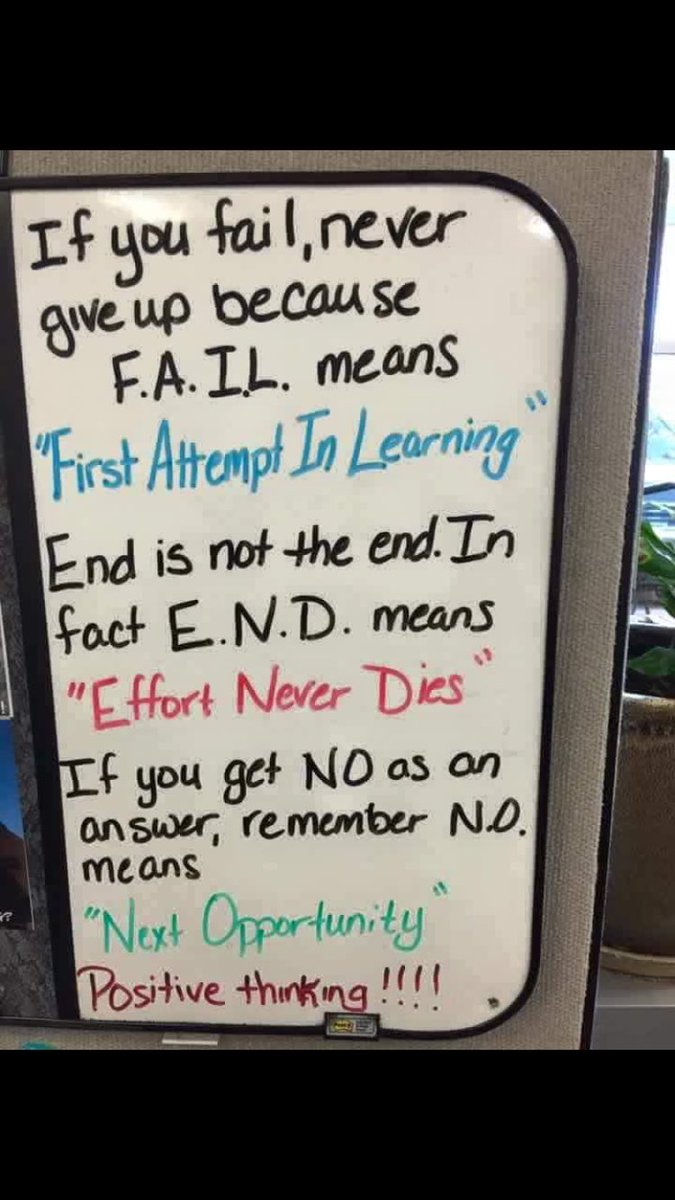 If you fail, never
give up because
F.A.I.L. means
"First Attempt In Learning"
End is not the end. In
fact E.N.D. means
"Effort Never Dies"
If you get NO as an
answer, remember N.O.
means
"Next Opportunity"
Positive thinking!!!!